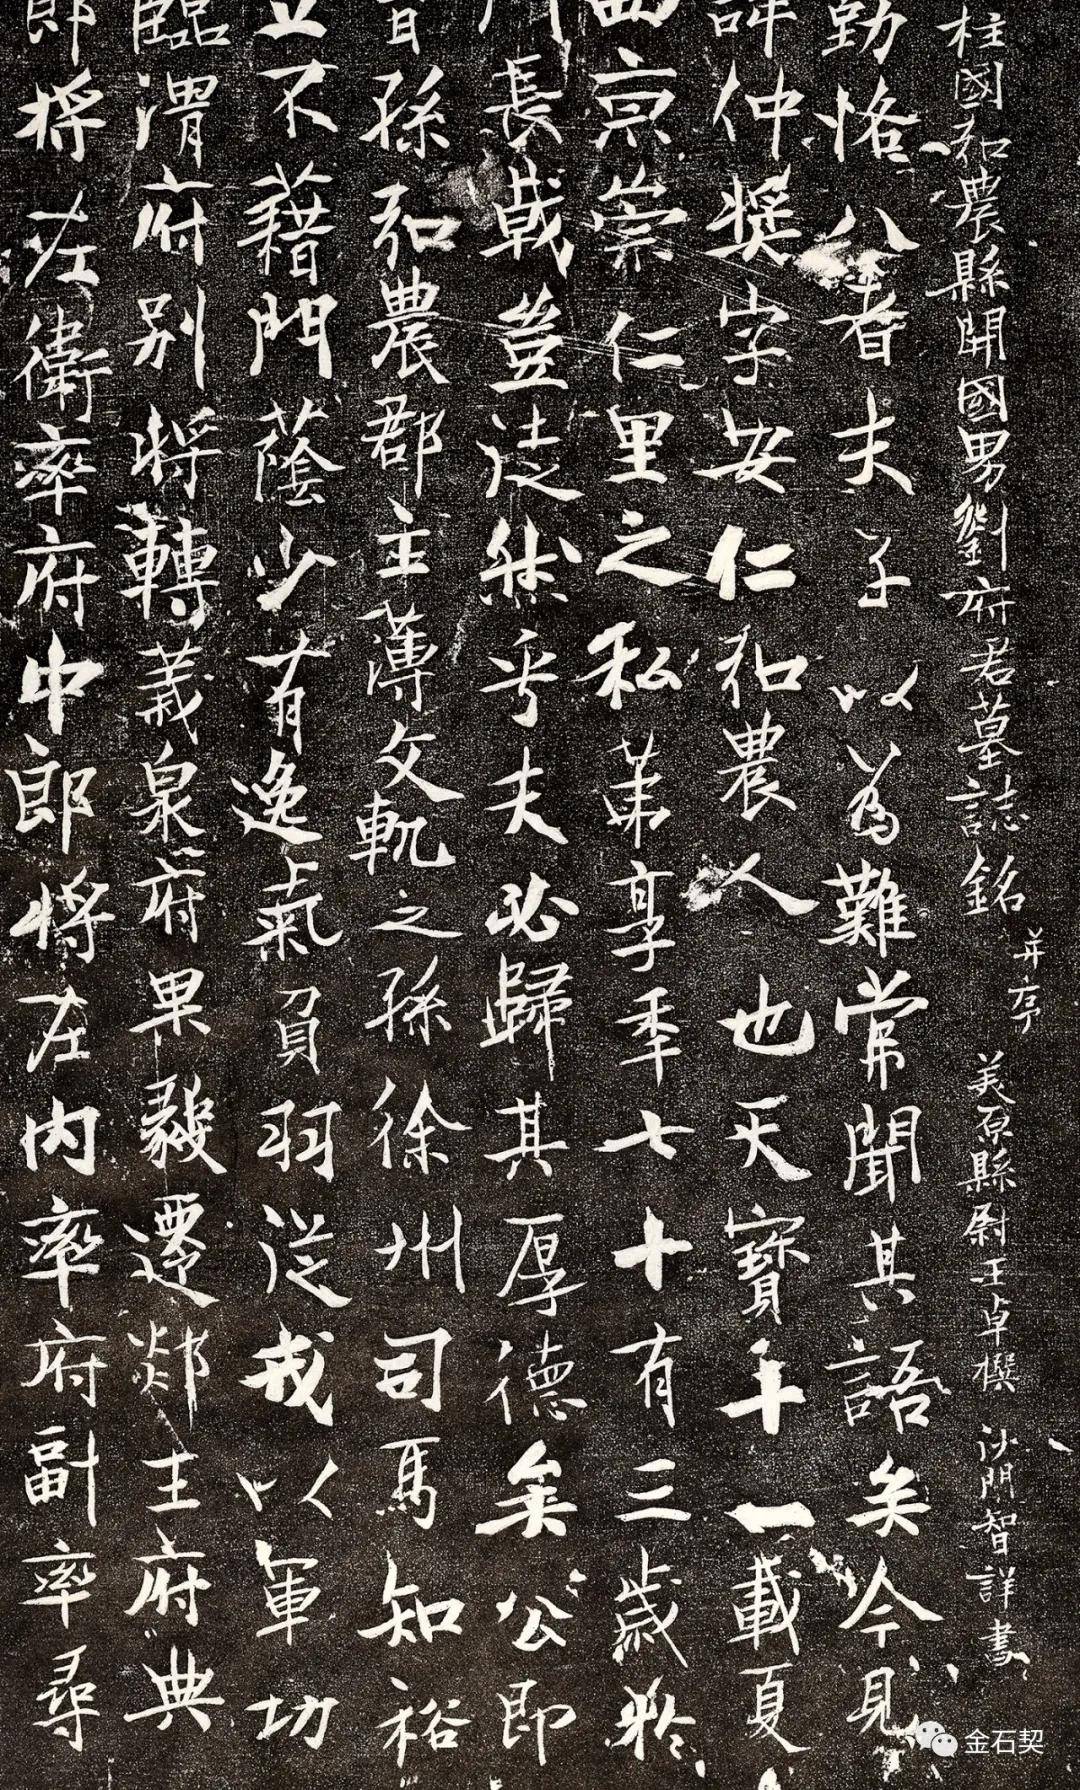 柱國弘農縣開國男劉府君墓誌銘并序 美原縣尉王卓撰 沙門智詳書
勤恪公者夫子以為難常聞其語矣今見
諱仲奬字安仁弘農人也天寶年一載夏
西京崇仁里之私苐享年七十有三歲於
門長戟豈徒然乎夫必歸其厚德矣公即
孫弘農郡主薄文軌之孫徐州司馬知裕
立不藉門蔭少有逸氣負羽從戎以軍功
臨渭府別將轉義泉府果毅遷郯王府典
郎將左衛率府中郎將左內率府副率尋
金石契